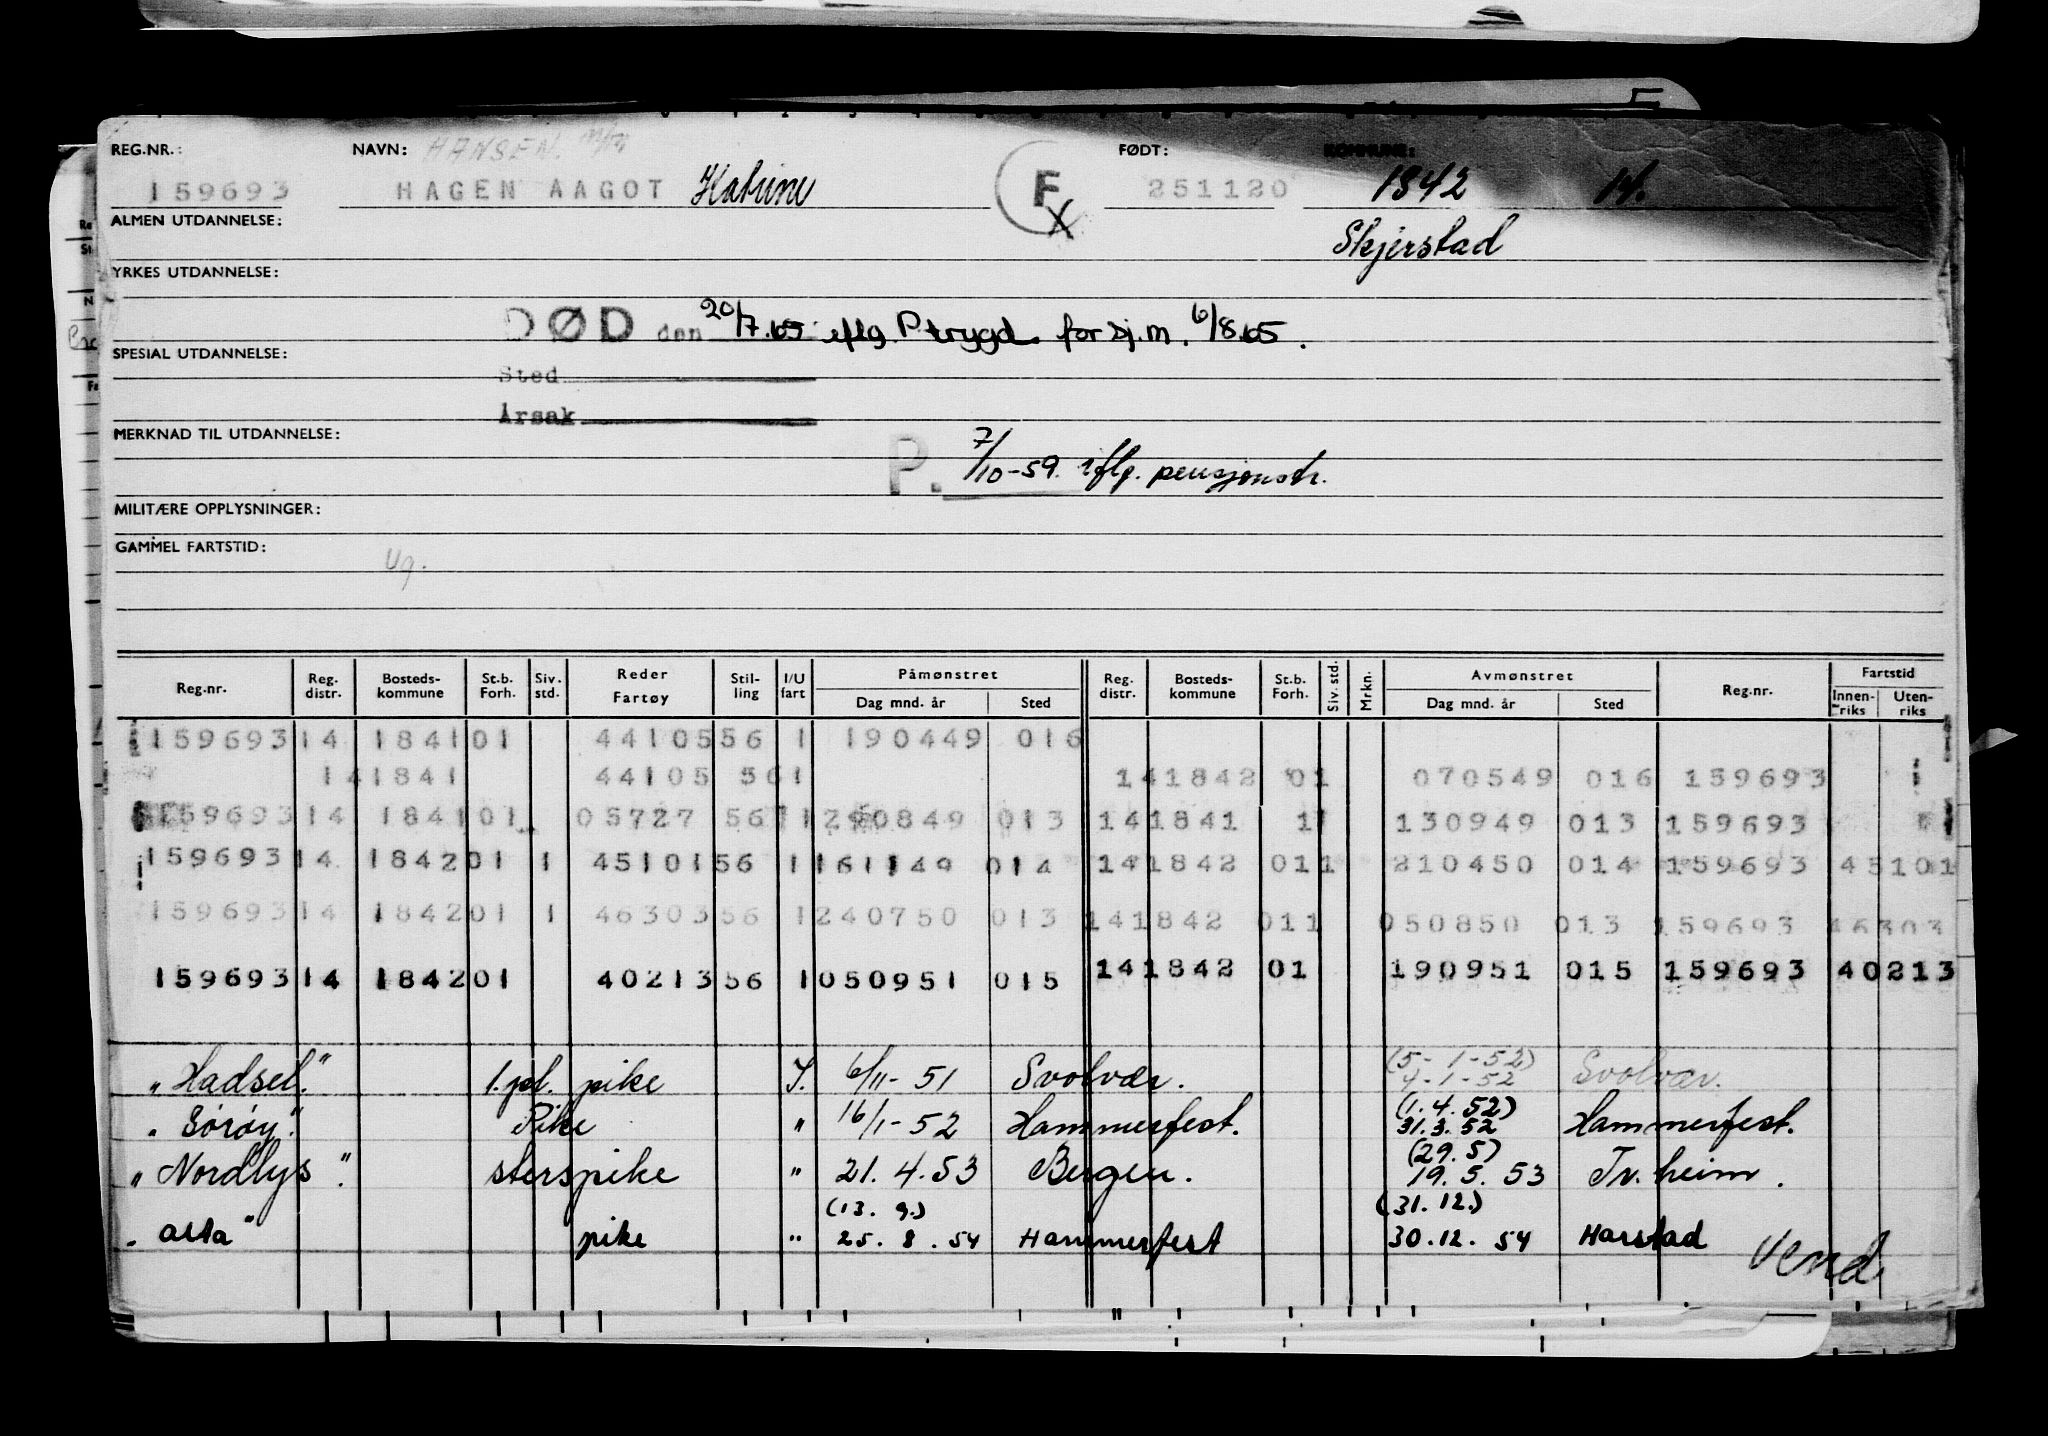 REG.NR.: NAVN: HANSEN. FØDT: KOMMUNE:
159693 HAGEN AAGOT Katrine F X 251120 1842 14.
ALMEN UTDANNELSE: Skjerstad
YRKES UTDANNELSE:
DØD den 20/7.65 iflg P.trygd. for sj.m. 6/8.65.
SPESIAL UTDANNELSE:
Sted
Årsak
MERKNAD TIL UTDANNELSE:
P. 7/10-59. iflg. pensjonstr.
MILITÆRE OPPLYSNINGER:
GAMMEL FARTSTID: Ug.
Reg.nr. Reg. distr. Bosteds-kommune St.b. Forh. Siv. std. Reder Fartøy Stil-ling I/U fart Påmønstret Dag mnd. år Sted Reg. distr. Bosteds-kommune St.b. Forh. Siv. std. Mrkn. Avmønstret Dag mnd. år Sted Reg.nr. Fartstid Innen-riks Uten-riks
159693 14 1841 01 44105 56 1 190449 016
14 1841 44105 56 1 14 1842 01 070549 016 159693
159693 14 1841 01 05727 56 1 0849 013 14 1841 1 130949 013 159693
159693 14 1842 01 1 45101 56 1 161149 014 14 1842 01 1 210450 014 159693 45101
159693 14 1842 01 1 46303 56 1 240750 013 14 1842 01 1 050850 013 159693 46303
159693 14 1842 01 40213 56 1 050951 015 14 1842 01 190951 015 159693 40213
(5-1-52)
"Hadsel." 1.pl. pike I. 6/11-51 Svolvær. 4-1-52 Svolvær.
(1.4.52)
"Sörøy". Pike " 16/1-52 Hammerfest. 31.3.52 Hammerfest.
(29.5)
"Nordlys". sterspike " 21.4.53 Bergen. 19.5.53 Tr.heim.
(13. 9.) (31.12.)
"Alta" pike " 25.8.54 Hammerfest 30.12.54 Harstad Vend